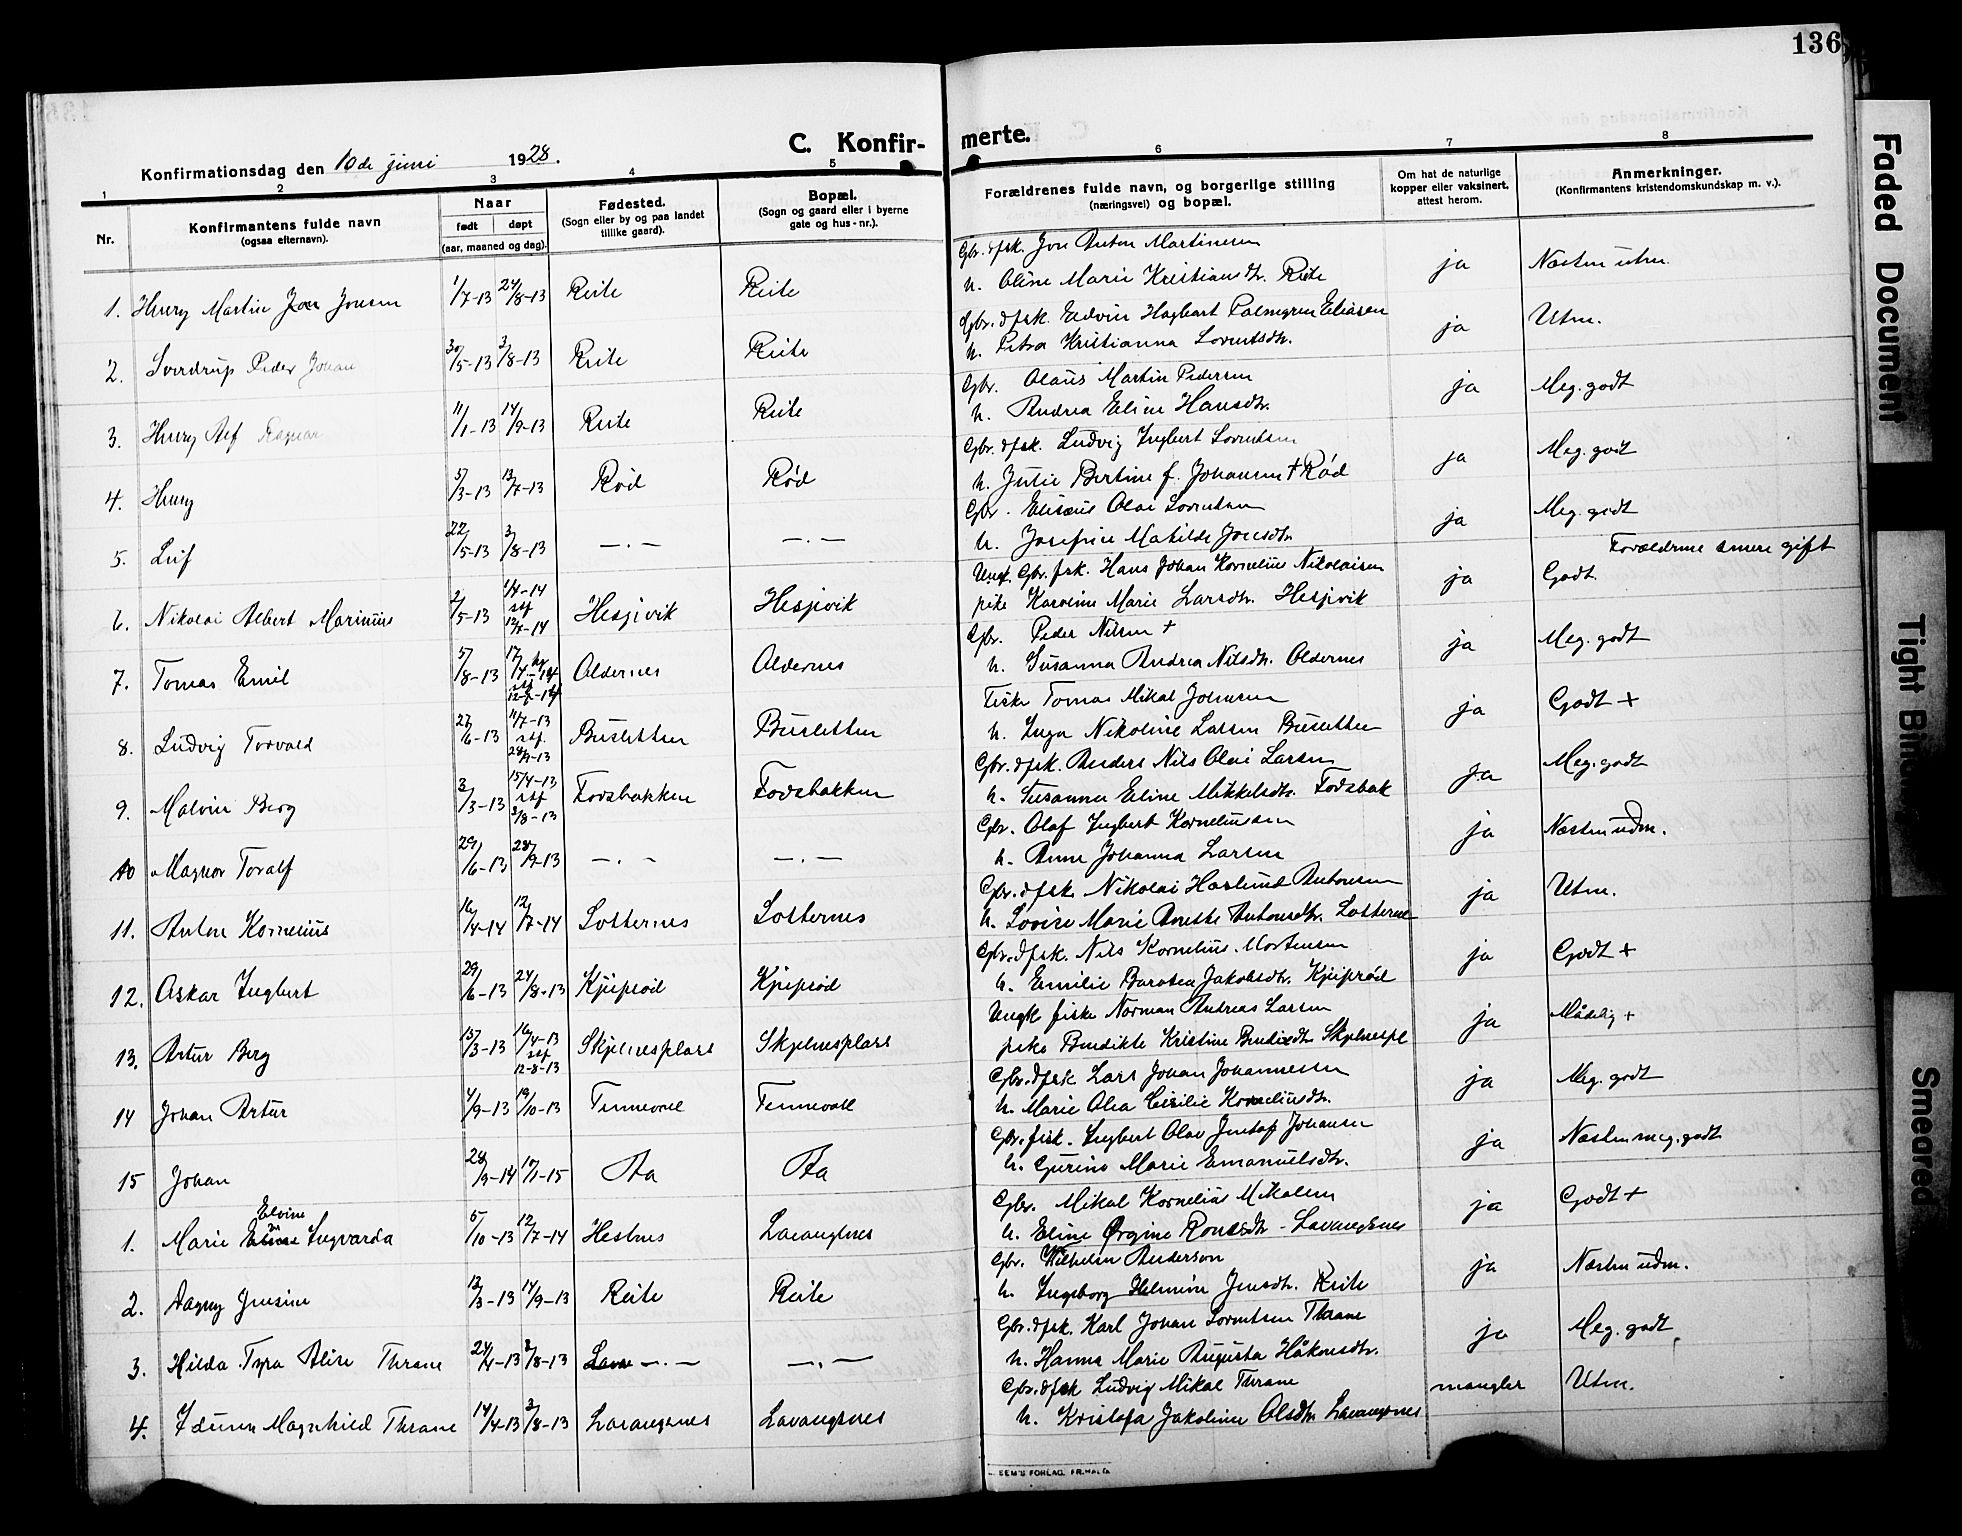 136
C. Konfir-
merte.
Konfirmationsdag den 10de juni 1928.
1 2 3 4 5 6 7 8
Nr.
Konfirmantens fulde navn
(ogsaa efternavn).
Naar
født døpt
(aar, maaned og dag).
Fødested.
(Sogn eller by og paa landet
tillike gaard).
Bopæl.
(Sogn og gaard eller i byerne
gate og hus-nr.).
Forældrenes fulde navn, og borgerlige stilling
(næringsvei) og bopæl.
Om hat de naturlige
kopper eller vaksinert.
attest herom.
Anmerkninger.
(Konfirmantens kristendomskundskap m. v.).
Gbr. & fsk. Jon Anton Martinsen
1. Henry Martin Jon Jonsen 1/7-13 24/8-13 Reite Reite h. Oline Marie Kristiansdtr. Reite ja Næsten utm.
Gbr. & fsk. Edvin Hagbart Palmgren Eliasen
2. Sverdrup Peder Johan 30/5-13 3/8-13 Reite Reite h. Petra Kristianna Lorentsdtr. ja Utm.
Gbr. Olaus Martin Pedersen
3. Henry Alf Ragnar 11/1-13 14/9-13 Reite Reite h. Andrea Eline Hansdtr. ja Meg. godt
Gbr. & fsk. Ludvig Ingbert Lorentsen
4. Henry 5/3-13 13/7-13 Rød Rød h. Julie Bertine f. Johansen + Rød ja Meg. godt
Gbr. Elisæus Olai Lorentsen
5. Leif 22/5-13 3/8-13 —.— —.— h. Josefine Matilde Jonsdtr. ja Meg. godt
Forældrene senere gift
Ungk. Gbr. fsk. Hans Johan Kornelius Nikolaisen
6. Nikolai Albert Marinius 2/5-13 1/4-14 stf 12/7-14 Hesjevik Hesjevik pike Karoline Marie Larsdtr. Hesjevik ja Godt.
Gbr. Peder Nilsen +
7. Tomas Emil 5/8-13 17/4-14 stf 12-7-14 Aldernes Aldernes h. Susanna Andrea Nilsdtr. Aldernes ja Meg. godt
Fisker Tomas Mikal Johnsen
8. Ludvig Torvald 27/6-13 11/7-13 stf. 28/9-13 Busletten Busletten h. Inga Nikoline Larsen Busletten ja Godt +
Gbr. & fsk. Anders Nils Olai Larsen
9. Malvin Berg 3/3-13 15/4-13 stf 3/8-13 Fodsbakken Fodsbakken h. Susanna Eline Mikkelsdtr. Fodsbak ja Meg. godt
Gbr. Olaf Ingbert Korneliussen
10 Magnor Toralf 29/6-13 28/9-13 —.— —.— h. Anne Johanna Larsen ja Næsten udm.
Gbr. & fsk. Nikolai Haslund Antonsen
11. Anton Kornelius 16/4-14 12/7-14 Lotternes Lotternes h. Lovise Marie Anette Antonsdtr. Lotternes ja Utm.
Gbr. & fsk. Nils Kornelius Mortensen
12. Oskar Ingbert 29/6-13 24/8-13 Kjeiprød Kjeiprød h. Emilie Dorotea Jakobsdtr. Kjeiprød ja Godt +
Ungk fisker Norman Andreas Larsen
13. Artur Berg 15/3-13 16/4-13 stf 12-8-13 Skjelnesplass Skjelnesplass pike Bendikte Kristine Bendixdtr Skjelnespl ja Mådelig +
Gbr. & fsk Lars Johan Johannesen
14 Johan Artur 4/9-13 19/10-13 Tennevoll Tennevoll h. Marie Olea Cecilie Korneliusdtr. ja Meg. godt
Gbr. fisk. Ingbert Olav Gustaf Johansen
15 Johan 28/9-14 10/1-15 Aa Aa h. Gurine Marie Emanuelsdtr. ja Næsten meg. godt
Gbr. Mikal Kornelius Mikalsen
1. Marie Elvine Ingvarda 5/10-13 12/7-14 Hesnes Lavangsnes h. Eline Ørgine Ronesdtr - Lavangsnes ja Godt +
Gbr. Wilhelm Anderson
2. Dagny Jensine 12/3-13 14/9-13 Reite Reite h. Ingeborg Helmine Jensdtr. Reite ja Næsten udm.
Gbr. & fsk. Karl Johan Lorentsen Thrane
3. Hilda Tyra Alise Thrane 24/4-13 3/8-13 —.— —.— h. Hanna Marie Augusta Håkonsdtr. ja Meg. godt
Gbr. & fsk Ludvig Mikal Thrane
4. Idunn Magnhild Thrane 14/4-13 3/8-13 Lavangsnes Lavangsnes h. Kristofa Jakoline Olsdtr Lavangsnes mangler Utm.
SEM'S FORLAG, FR.HALD.
Faded Document
Tight Bin
Smeared